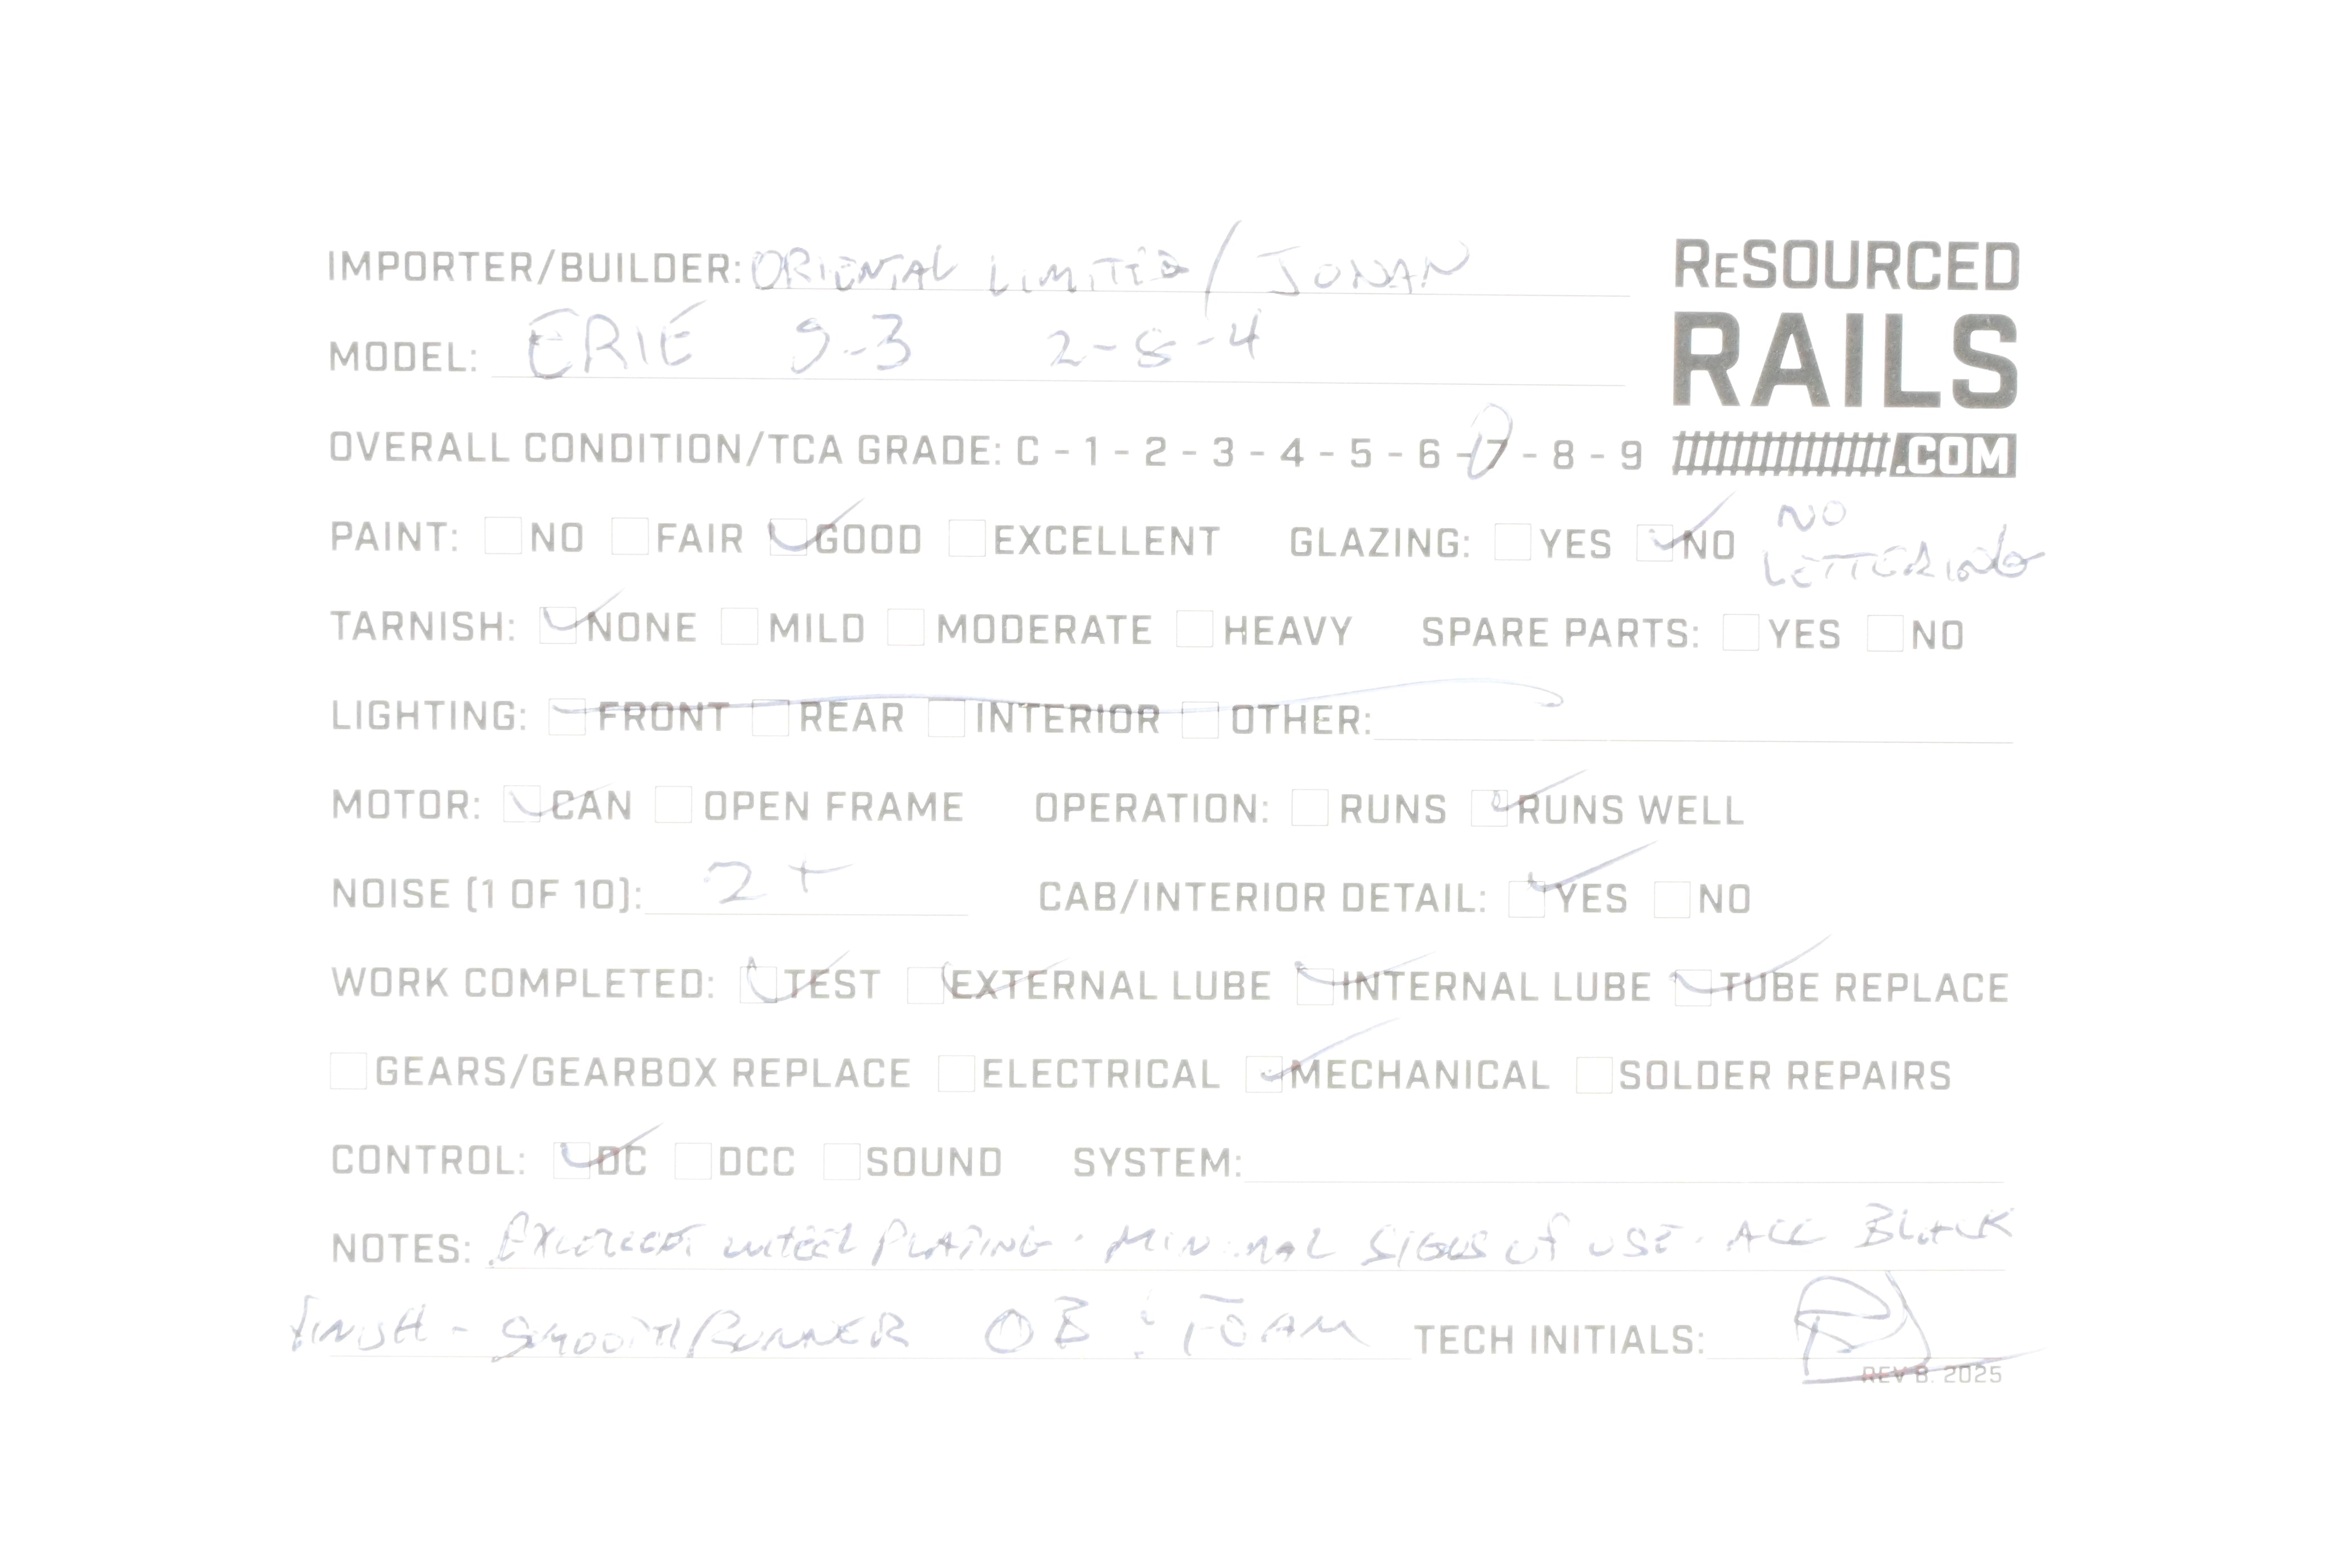 IMPORTER/BUILDER: ORIENTAL LIMITED/JONAN
ReSOURCED
RAILS
.COM
MODEL: ERIE S-3 2-8-4
OVERALL CONDITION/TCA GRADE: C - 1 - 2 - 3 - 4 - 5 - 6 - 7 - 8 - 9
PAINT: NO FAIR GOOD EXCELLENT GLAZING: YES NO
NO
LETTERING
TARNISH: NONE MILD MODERATE HEAVY SPARE PARTS: YES NO
LIGHTING: FRONT REAR INTERIOR OTHER:
MOTOR: CAN OPEN FRAME OPERATION: RUNS RUNS WELL
NOISE (1 OF 10): 2+ CAB/INTERIOR DETAIL: YES NO
WORK COMPLETED: TEST EXTERNAL LUBE INTERNAL LUBE TUBE REPLACE
GEARS/GEARBOX REPLACE ELECTRICAL MECHANICAL SOLDER REPAIRS
CONTROL: DC DCC SOUND SYSTEM:
NOTES: EXCELLENT WHEEL PLATING. MINIMAL SIGNS OF USE. ALL BLACK
FINISH - SMOOTH RUNNER OB & FOAM TECH INITIALS:
REV B. 2025